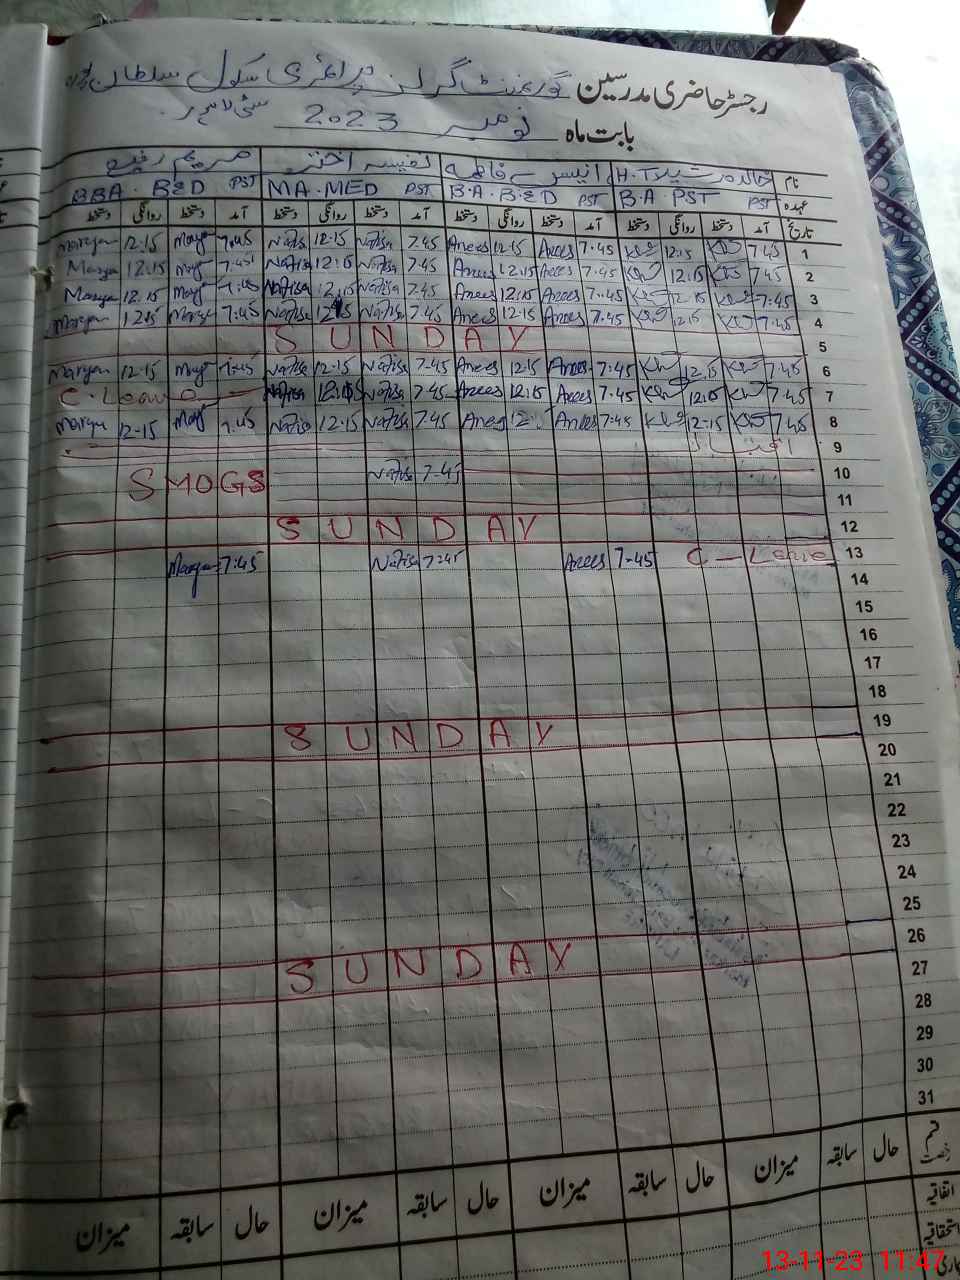 رجسٹر حاضری مدرسین گورنمنٹ گرلز پرائمری سکول سلطان
بابت ماہ نومبر 2023
نام خالدہ رشید H.T انیس فاطمہ نفیسہ اختر مریم رفیع
عہدہ PST B.A PST PST B.A. B.ED PST MA.MED PST BBA. B.ED
تاریخ آمد دستخط روانگی دستخط آمد دستخط روانگی دستخط آمد دستخط روانگی دستخط آمد دستخط روانگی دستخط
Maryam 12.15 Mary 7.45 Nafisa 12.15 Nafisa 7.45 Anees 12.15 Anees 7.45 12.15 7.45 1
Maryam 12.15 Mary 7.45 Nafisa 12.15 Nafisa 7.45 Anees 12.15 Anees 7.45 12.15 7.45 2
Maryam 12.15 Mary 7.45 Nafisa 12.15 Nafisa 7.45 Anees 12.15 Anees 7.45 12.15 7.45 3
Maryam 12.15 Mary 7.45 Nafisa 12.15 Nafisa 7.45 Anees 12.15 Anees 7.45 12.15 7.45 4
SUNDAY 5
Maryam 12.15 Mary 7.45 Nafisa 12.15 Nafisa 7.45 Anees 12.15 Anees 7.45 12.15 7.45 6
C. Leave Nafisa 12.15 Nafisa 7.45 Anees 12.15 Anees 7.45 12.15 7.45 7
Maryam 12.15 Mary 7.45 Nafisa 12.15 Nafisa 7.45 Anees 12.15 Anees 7.45 12.15 7.45 8
اقبال 9
SMOGS Nafisa 7.45 10
11
SUNDAY 12
Maryam 7:45 Nafisa 7:45 Anees 7.45 C - Leave 13
14
15
16
17
18
SUNDAY 19
20
21
22
23
24
25
SUNDAY 26
27
28
29
30
31
قسم رخصت حال سابقہ میزان حال سابقہ میزان حال سابقہ میزان حال سابقہ میزان
اتفاقیہ
استحقاقیہ
13-11-23 11:47